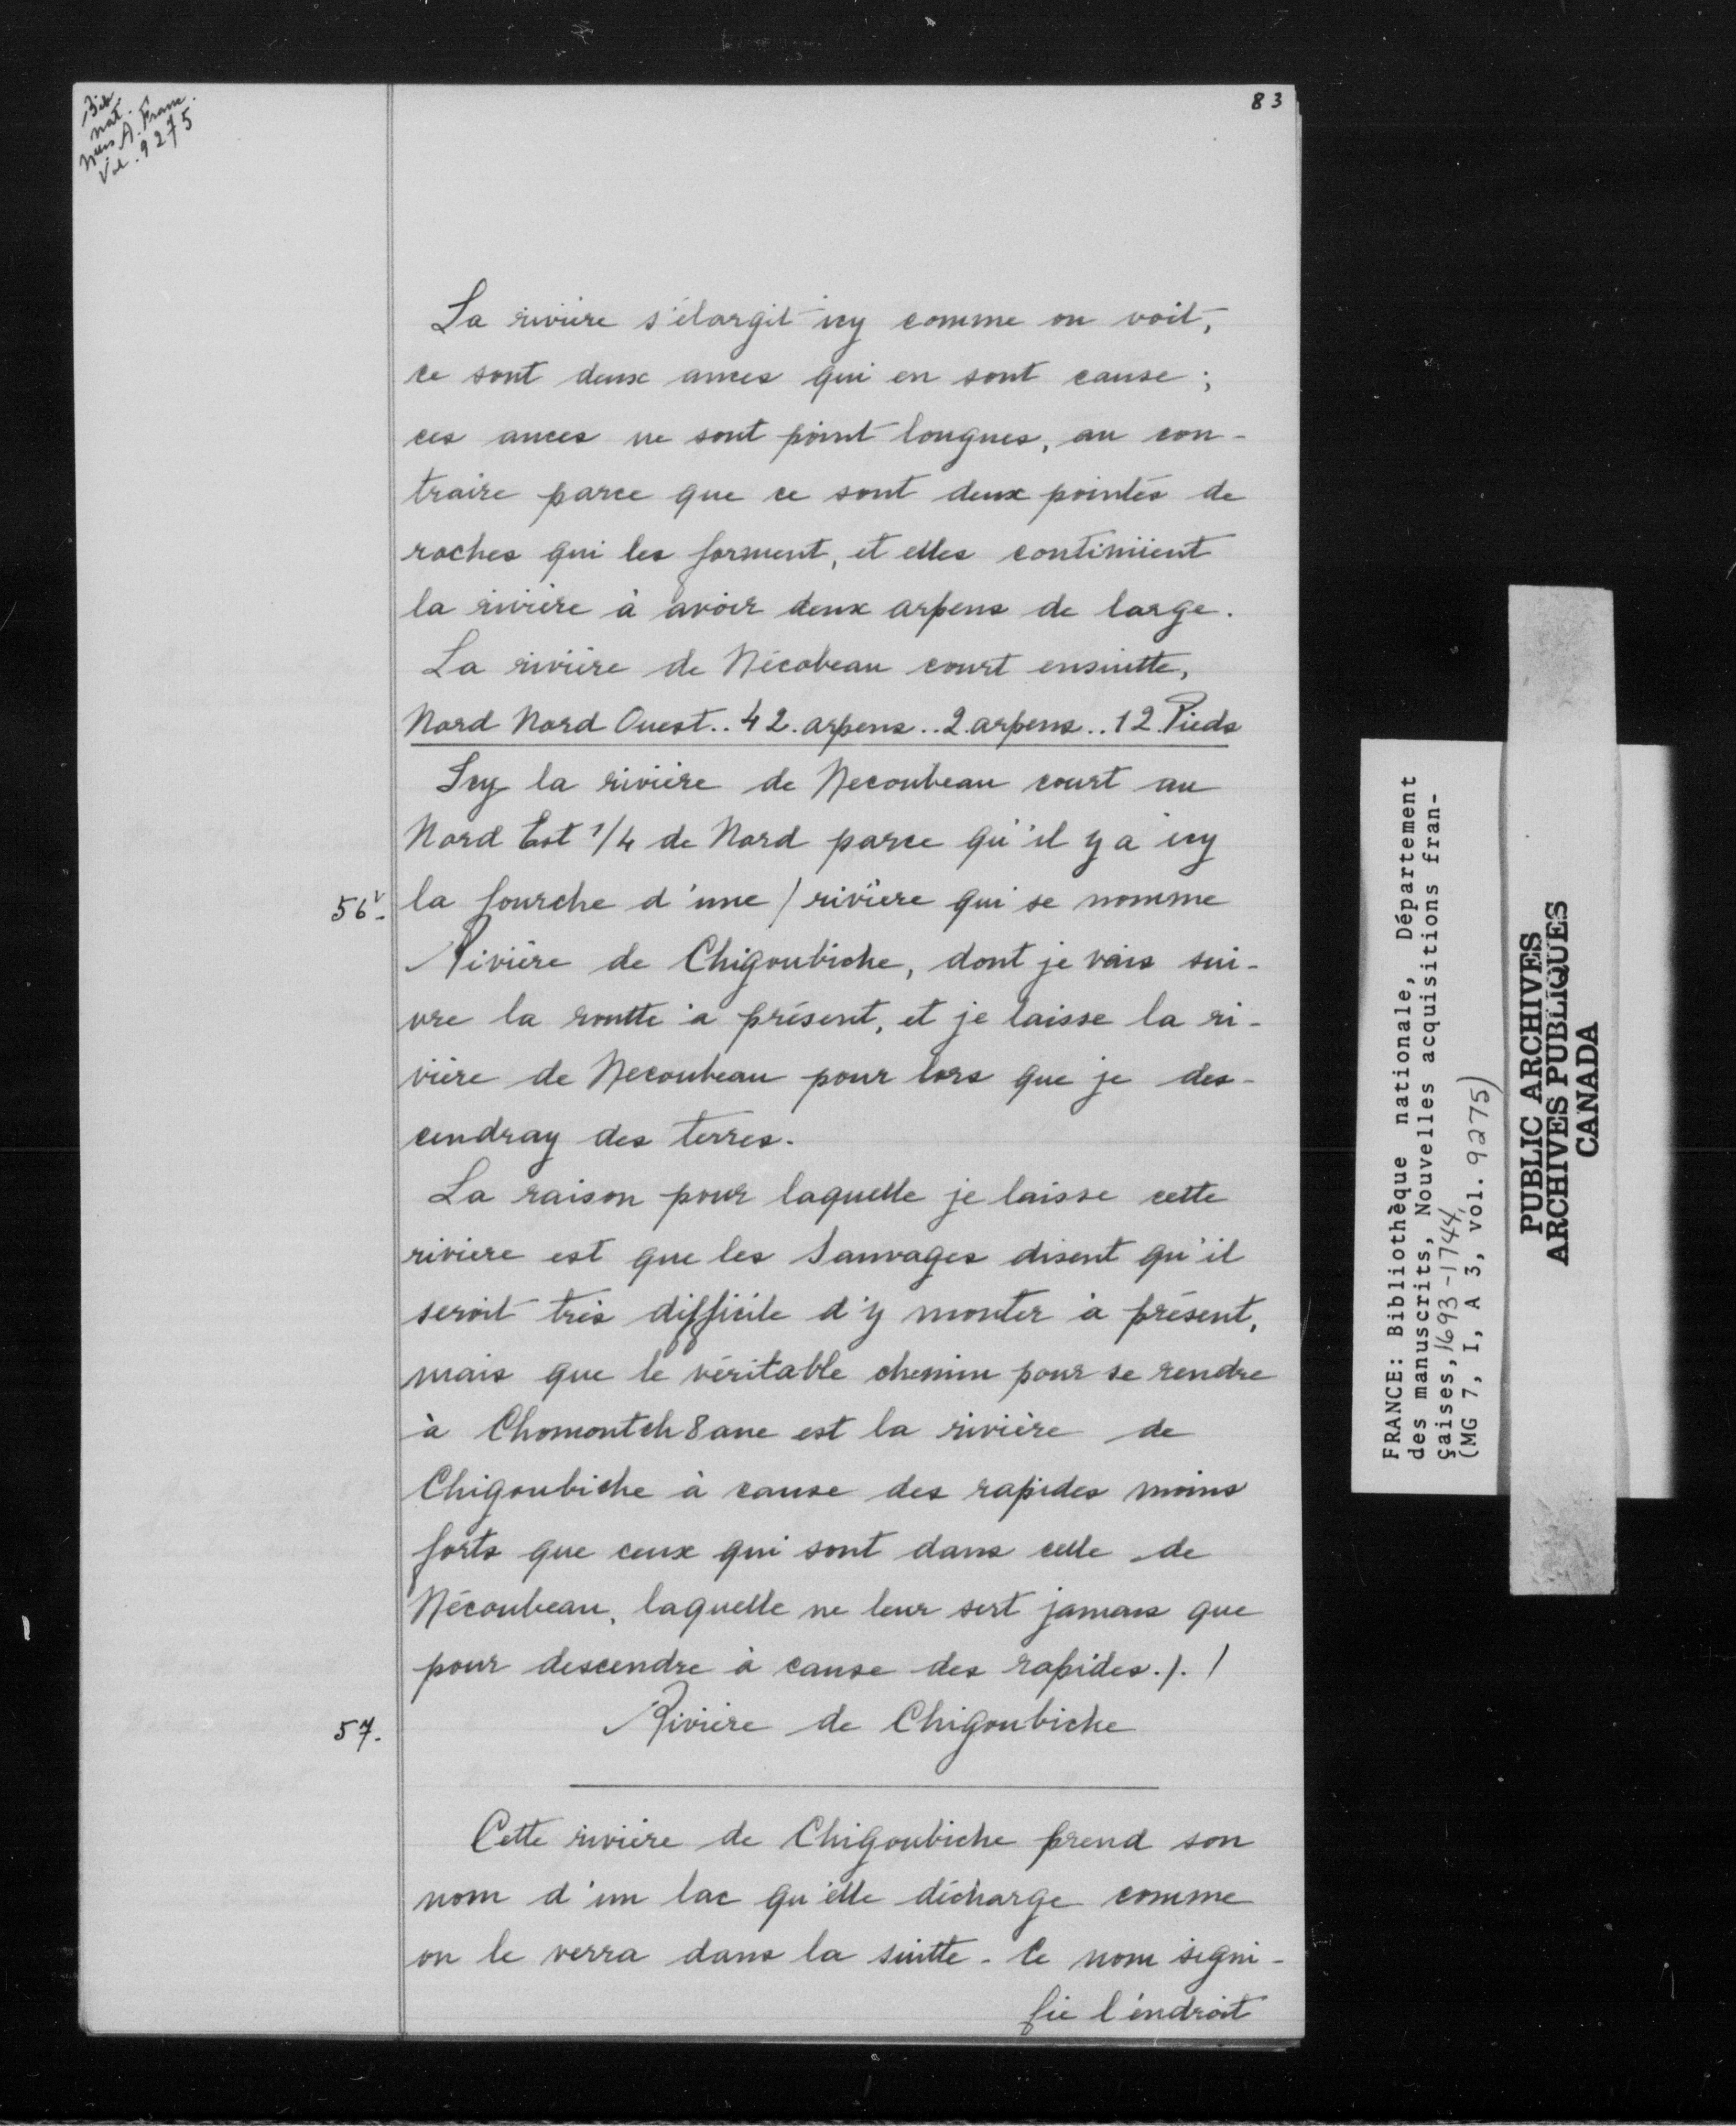 Bib
nat.
Nelles A. Franc.
Vol. 9275
83
La rivière s'élargit icy comme on voit,
ce sont deux ances qui en sont cause ;
ces ances ne sont point longues, au con-
traire parce que ce sont deux pointes de
roches qui les forment, et elles continüent
la rivière à avoir deux arpens de large.
La rivière de Nécobeau court ensuitte,
Nord Nord Ouest.. 42. arpens.. 2. arpens.. 12. Pieds
Icy la rivière de Necoubeau court au
Nord Est 1/4 de Nord parce qu'il y a icy
56v. la fourche d'une / rivière qui se nomme
Rivière de Chigoubiche, dont je vais sui-
vre la routte à présent, et je laisse la ri-
vière de Necoubeau pour lors que je des-
cendray des terres.
La raison pour laquelle je laisse cette
riviere est que les Sauvages disent qu'il
seroit très difficile d'y monter à présent,
mais que le véritable chemin pour se rendre
à Chomontch8ane est la rivière de
Chigoubiche à cause des rapides moins
forts que ceux qui sont dans celle de
Nécoubeau, laquelle ne leur sert jamais que
pour descendre à cause des rapides./. /
57. Rivière de Chigoubiche
Cette rivière de Chigoubiche prend son
nom d'un lac qu'elle décharge comme
on le verra dans la suitte. Ce nom signi-
fie l'endroit
FRANCE: Bibliothèque nationale, Département
des manuscrits, Nouvelles acquisitions fran-
çaises, 1693-1744
(MG 7, I, A 3, vol. 9275)
PUBLIC ARCHIVES
ARCHIVES PUBLIQUES
CANADA